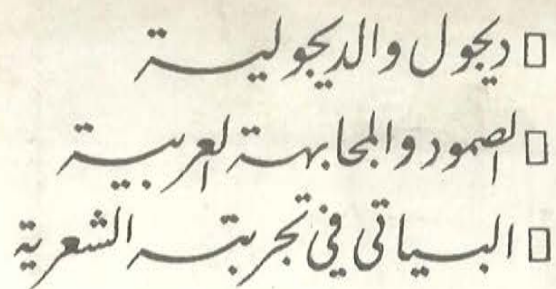 □ ديجول والديجولية
□ الصمود والمجابهة العربية
□ البياتي في تجربته الشعرية